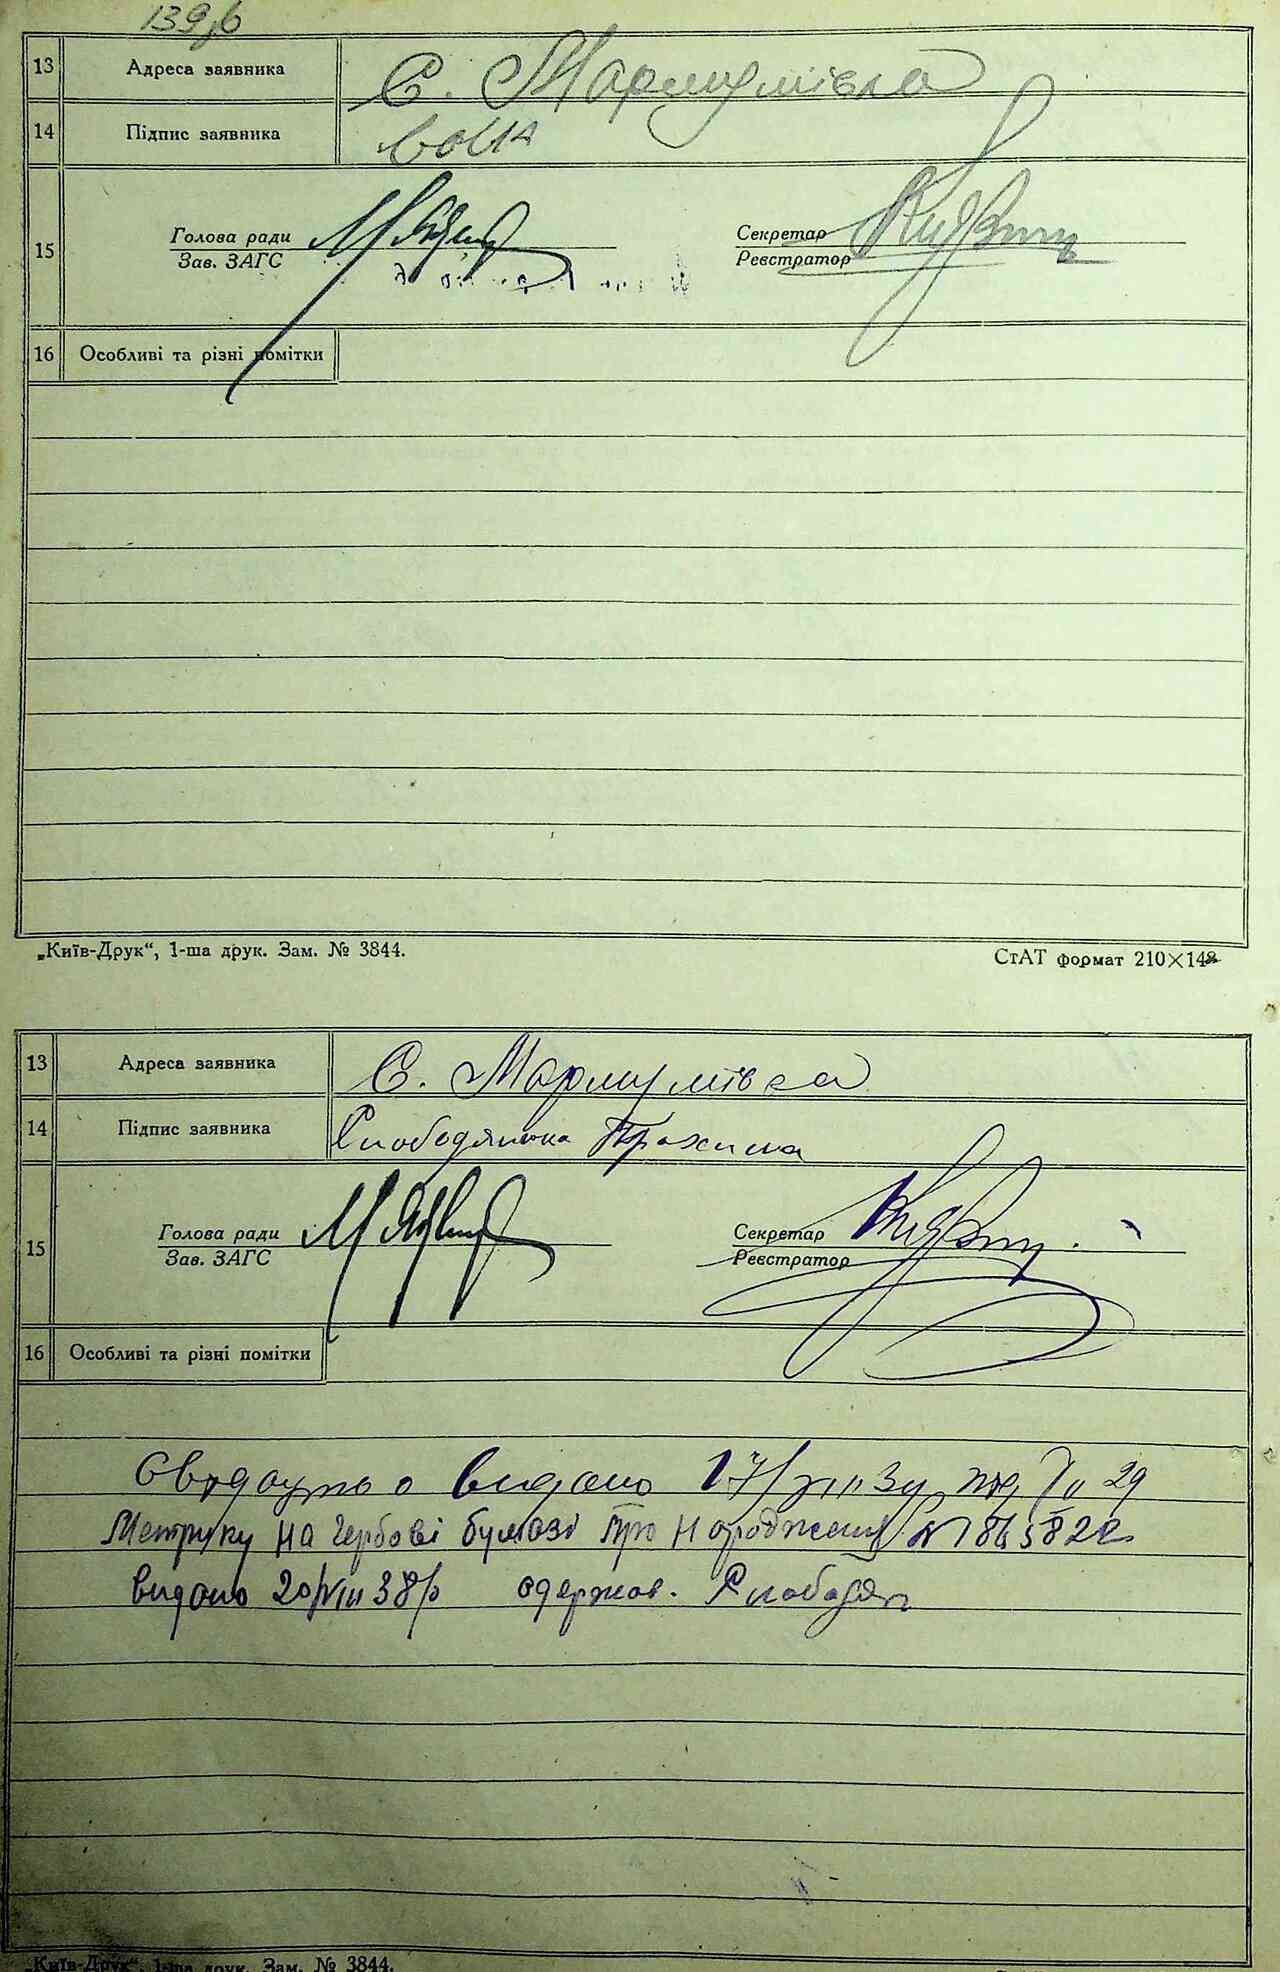 13 Адреса заявника С. Мармулівка
14 Підпис заявника
15 Голова ради Секретар
Зав. ЗАГС Реєстратор
16 Особливі та різні помітки
„Київ-Друк“, 1-ша друк. Зам. № 3844. СтАТ формат 210×148
13 Адреса заявника С. Мармулівка
14 Підпис заявника Слободянюка
15 Голова ради Секретар
Зав. ЗАГС Реєстратор
16 Особливі та різні помітки
видано 17/ 29
Метрику на гербові бумазі про народження №
видано 20/VIII 38/р одержов. Слободян
„Київ-Друк“, 1-ша друк. Зам. № 3844.